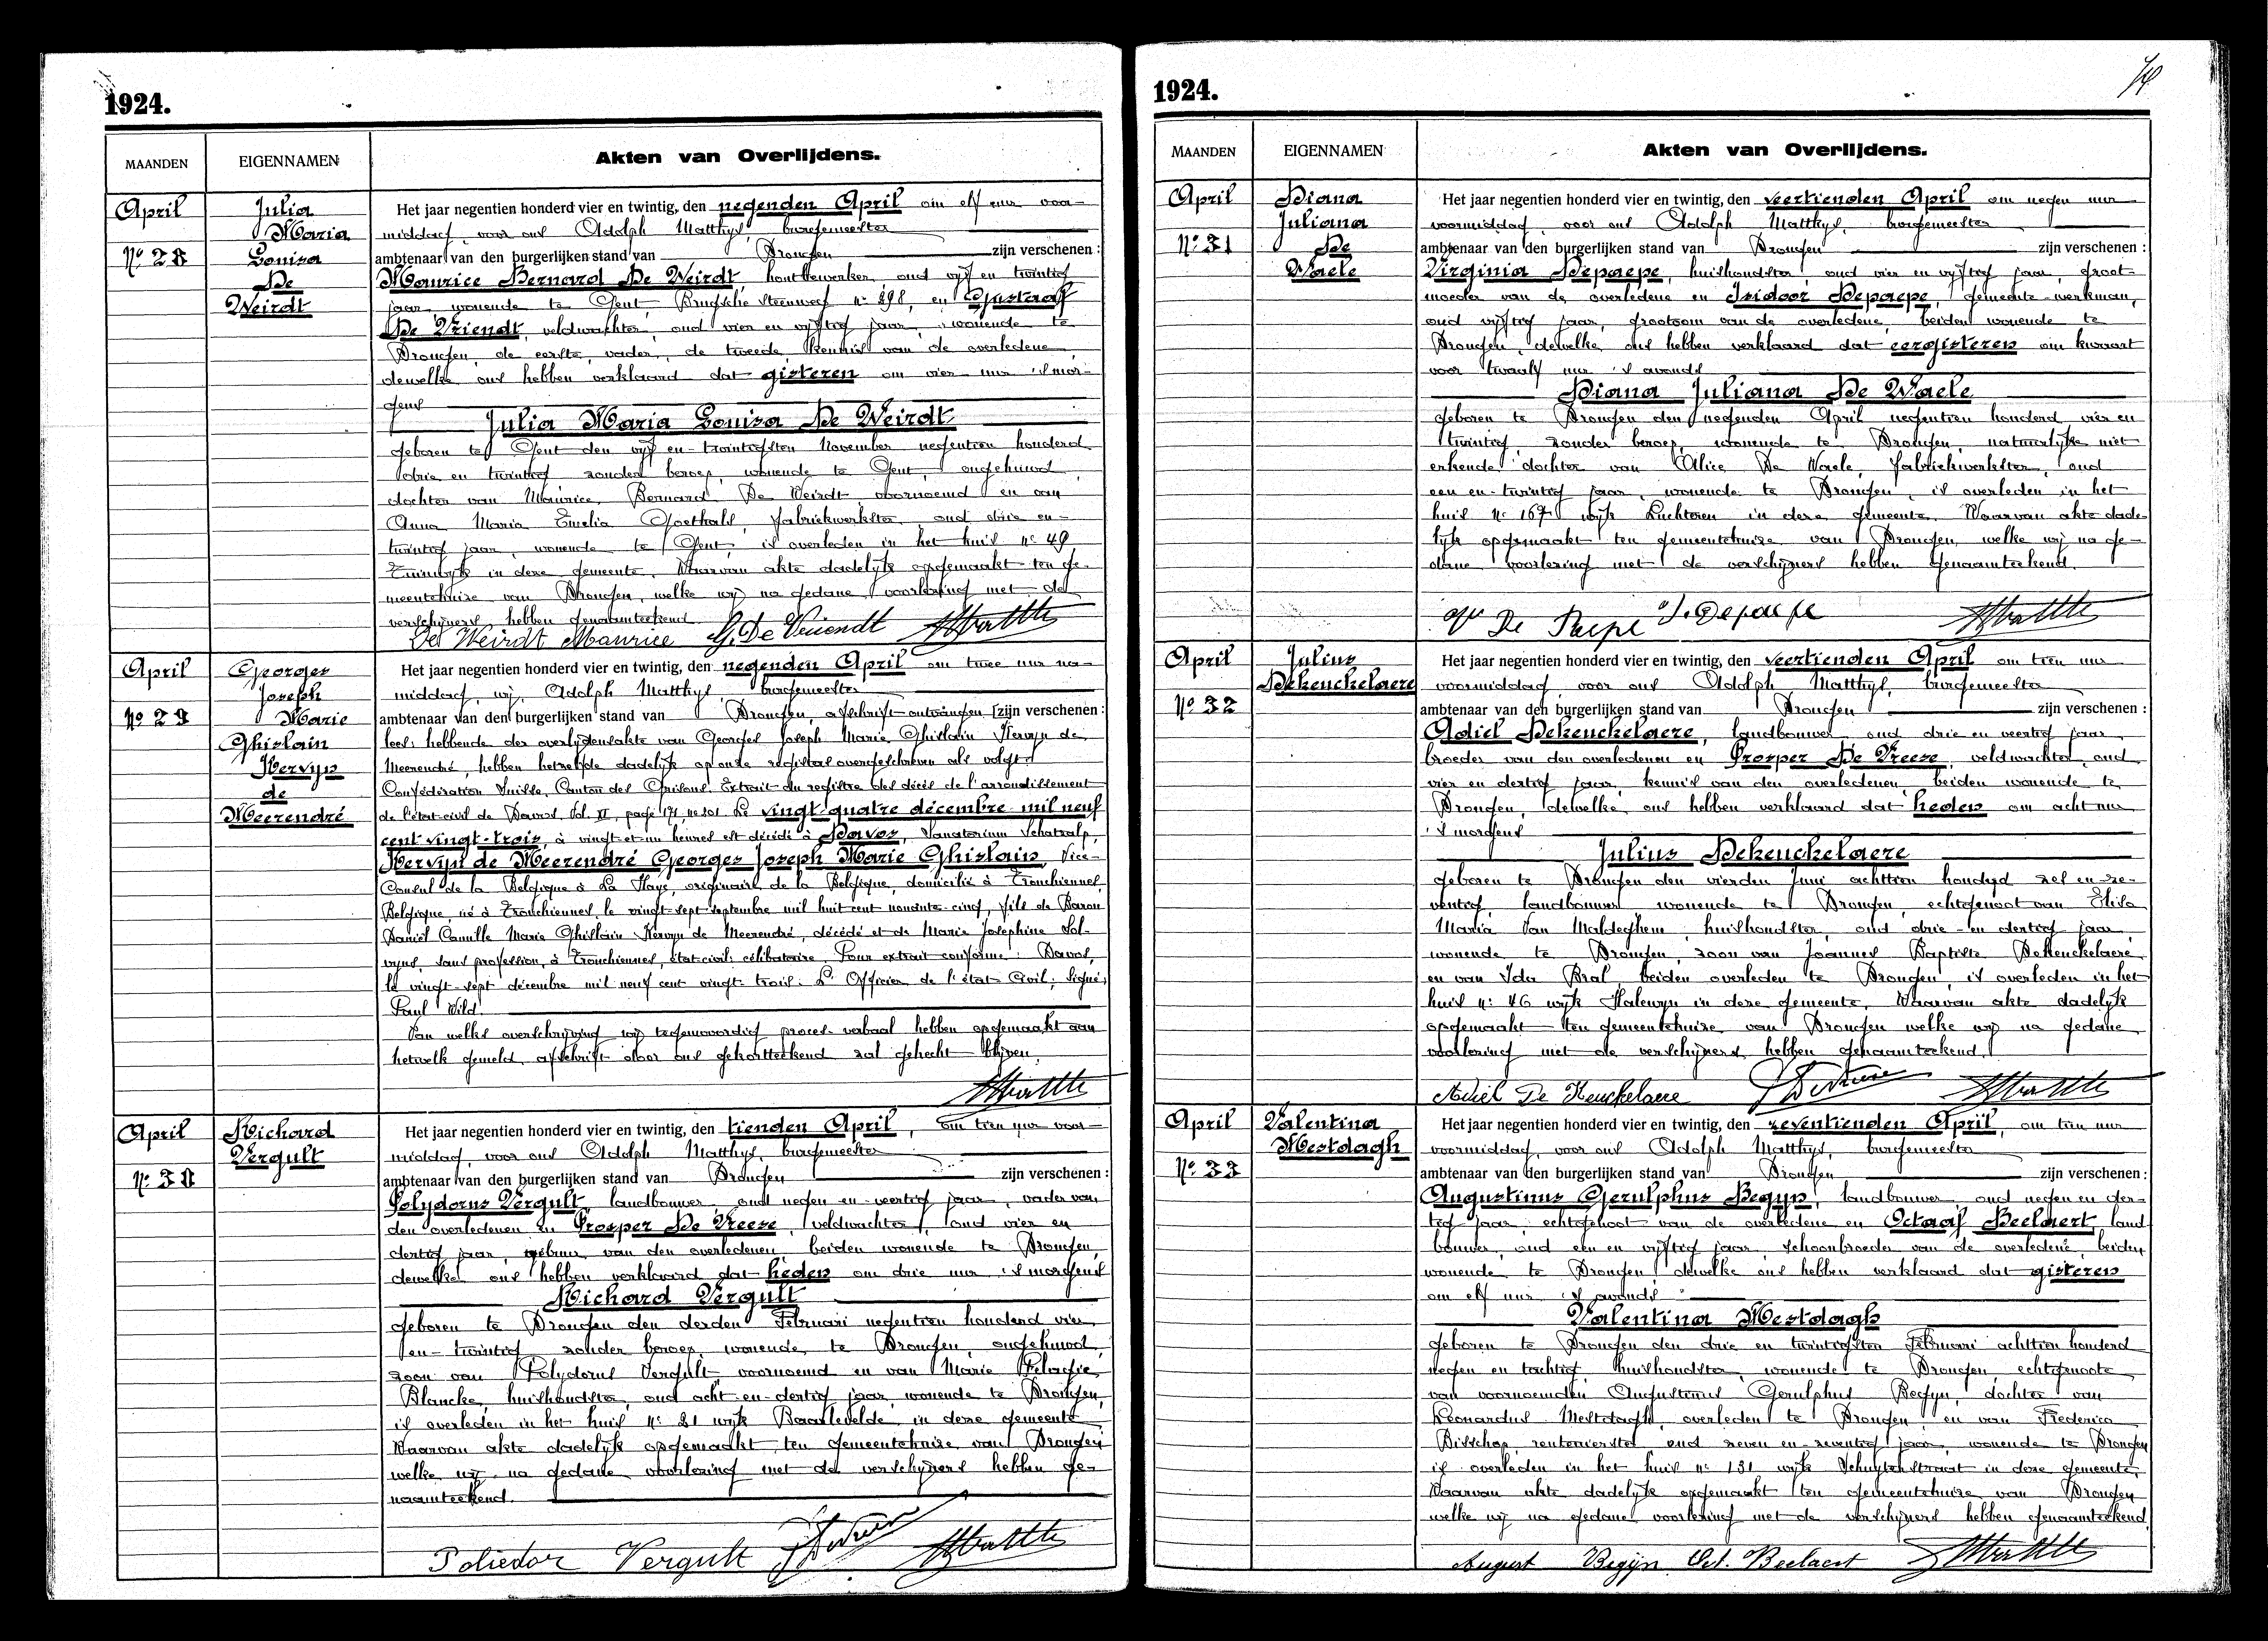 1924.
MAANDEN
EIGENNAMEN
Akten van Overlijdens.
April
No 28
Julia
Maria
Louisa
De
Weirdt
Het jaar negentien honderd vier en twintig, den negenden April om elf uur voor-
middag, voor ons Adolph Matthys, burgemeester
ambtenaar van den burgerlijken stand van Drongen zijn verschenen :
Maurice Bernard De Weirdt, houtbewerker, oud vijf en twintig
jaar, wonende te Gent, Brugsche steenweg no 298, en Gustaaf
De Vriendt, veldwachter, oud vier en vijftig jaar, wonende te
Drongen, de eerste, vader, de tweede, kennis van de overledene,
dewelke ons hebben verklaard dat gisteren om vier uur 's mor-
gens
Julia Maria Louisa De Weirdt
geboren te Gent den vijf en-twintigsten November negentien honderd
drie en twintig zonder beroep, wonende te Gent, ongehuwd,
dochter van Maurice Bernard De Weirdt, voornoemd en van
Anna Maria Emelia Goethals, fabriekwerkster, oud drie en-
twintig jaar, wonende te Gent, is overleden in het huis no 49
Tuinwijk in deze gemeente. Waarvan akte dadelijk opgemaakt ten ge-
meentehuize van Drongen, welke wij na gedane voorlezing met de
verschijners hebben genaamteekend
De Weirdt Maurice G. De Vriendt
April
No 29
Georges
Joseph
Marie
Ghislain
Kervyn
de
Meerendré
Het jaar negentien honderd vier en twintig, den negenden April om twee uur na-
middag, wij, Adolph Matthys, burgemeester
ambtenaar van den burgerlijken stand van Drongen, afschrift ontvangen [zijn verschenen :
hebbende der overlijdensakte van Georges Joseph Marie Ghislain Kervyn de
Meerendré, hebben hetzelfde dadelijk op onze registers overgeschreven als volgt:
Confédération Suisse, Canton des Grisons. Extrait du registre des décès de l'arrondissement
de l'état-civil de Davos, Vol. VI, page 171, no 201. Le vingt quatre décembre mil neuf
cent vingt-trois, à vingt-et-un heures est décédé à Davos, Sanatorium Schatzalp,
Kervyn de Meerendré Georges Joseph Marie Ghislain, Vice-
Consul de la Belgique à La Haye, originaire de la Belgique, domicilié à Tronchiennes,
Belgique, né à Tronchiennes, le vingt-sept septembre mil huit cent nonante-cinq, fils de Baron
Daniël Camille Marie Ghislain Kervyn de Meerendré, décédé et de Marie Josephine Sol-
vyns, sans profession, à Tronchiennes, état-civil: célibataire. Pour extrait conforme: Davos,
le vingt-sept décembre mil neuf cent vingt-trois. L' Officier de l'état Civil; Signé;
Paul Wild.
Van welks overschrijving wij tegenwoordig proces-verbaal hebben opgemaakt aan
hetwelk gemeld afschrift door ons gekortteekend zal gehecht blijven.
April
No 30
Richard
Vergult
Het jaar negentien honderd vier en twintig, den tienden April, om tien uur voor-
middag, voor ons Adolph Matthys, burgemeester
ambtenaar van den burgerlijken stand van Drongen zijn verschenen :
Polydorus Vergult, landbouwer, oud negen en-veertig jaar, vader van
den overledenen en Prosper De Vreese, veldwachter, oud vier en
dertig jaar, gebuur van den overledenen, beiden wonende te Drongen,
dewelke ons hebben verklaard dat heden om drie uur 's morgens
Richard Vergult
geboren te Drongen den derden Februari negentien honderd vier
en-twintig zonder beroep, wonende te Drongen, ongehuwd,
zoon van Polydorus Vergult voornoemd en van Marie Pelagie
Blancke, huishoudster, oud acht-en-dertig jaar, wonende te Drongen,
is overleden in het huis no 21 wijk Baarlevelde in deze gemeente
Waarvan akte dadelijk opgemaakt ten gemeentehuize van Drongen
welke wij na gedane voorlezing met de verschijners hebben ge-
naamteekend.
Poliedor Vergult
1924.
MAANDEN
EIGENNAMEN
Akten van Overlijdens.
April
No 31
Diana
Juliana
De
Waele
Het jaar negentien honderd vier en twintig, den veertienden April om negen uur
voormiddag, voor ons Adolph Matthys, burgemeester
ambtenaar van den burgerlijken stand van Drongen zijn verschenen :
Virginia Depaepe, huishoudster oud vier en vijftig jaar, groot-
moeder van de overledene en Isidoor Depaepe, gemeente-werkman,
oud vijftig jaar, grootoom van de overledene, beiden wonende te
Drongen, dewelke ons hebben verklaard dat eergisteren om kwaart
voor twaalf uur 's avonds
Diana Juliana De Waele
geboren te Drongen den negenden April negentien honderd vier en
twintig zonder beroep, wonende te Drongen, natuurlijke niet
erkende dochter van Alice De Waele, fabriekwerkster, oud
een en-twintig jaar, wonende te Drongen, is overleden in het
huis no 167 wijk Luchteren in deze gemeente. Waarvan akte dade-
lijk opgemaakt ten gemeentehuize van Drongen, welke wij na ge-
dane voorlezing met de verschijners hebben genaamteekend.
De Paepe I. Depaepe
April
No 32
Julius
Dekeuckelaere
Het jaar negentien honderd vier en twintig, den veertienden April om tien uur
voormiddag, voor ons Adolph Matthys, burgemeester
ambtenaar van den burgerlijken stand van Drongen zijn verschenen :
Adiel Dekeuckelaere, landbouwer, oud drie en veertig jaar,
broeder van den overledenen en Prosper De Vreese, veldwachter, oud
vier en dertig jaar, kennis van den overledenen, beiden wonende te
Drongen, dewelke ons hebben verklaard dat heden om acht uur
's morgens
Julius Dekeuckelaere
geboren te Drongen den vierden Juni achttien honderd zes en-ze-
ventig, landbouwer wonende te Drongen, echtgenoot van Elisa
Maria Van Maldeghem, huishoudster, oud drie-en dertig jaar,
wonende te Drongen, zoon van Joannes Baptiste Dekeuckelaere
en van Ida Bral, beiden overleden te Drongen, is overleden in het
huis no 46 wijk Halewyn in deze gemeente. Waarvan akte dadelijk
opgemaakt ten gemeentehuize van Drongen welke wij na gedane
voorlezing met de verschijners hebben genaamteekend.
Adiel De Keuckelaere
April
No 33
Valentina
Mestdagh
Het jaar negentien honderd vier en twintig, den zeventienden April, om tien uur
voormiddag, voor ons Adolph Matthys, burgemeester
ambtenaar van den burgerlijken stand van Drongen zijn verschenen :
Augustinus Gerulphus Begyn, landbouwer, oud negen en der-
tig jaar, echtgenoot van de overledene en Octaaf Beelaert, land-
bouwer, oud een en vijftig jaar, schoonbroeder van de overledene, beiden
wonende te Drongen dewelke ons hebben verklaard dat gisteren
om elf uur 's avonds
Valentina Mestdagh
geboren te Drongen den drie en twintigsten Februari achttien honderd
negen en tachtig huishoudster, wonende te Drongen, echtgenoote
van voornoemden Augustinus Gerulphus Begyn, dochter van
Leonardus Mestdagh, overleden te Drongen, en van Frederica
Bisschop, rentenierster oud zeven en-zeventig jaar, wonende te Drongen
is overleden in het huis no 131 wijk Schuytenstraat in deze gemeente,
Waarvan akte dadelijk opgemaakt ten gemeentehuize van Drongen
welke wij na gedane voorlezing met de verschijners hebben genaamteekend.
August Begijn Oct. Beelaert